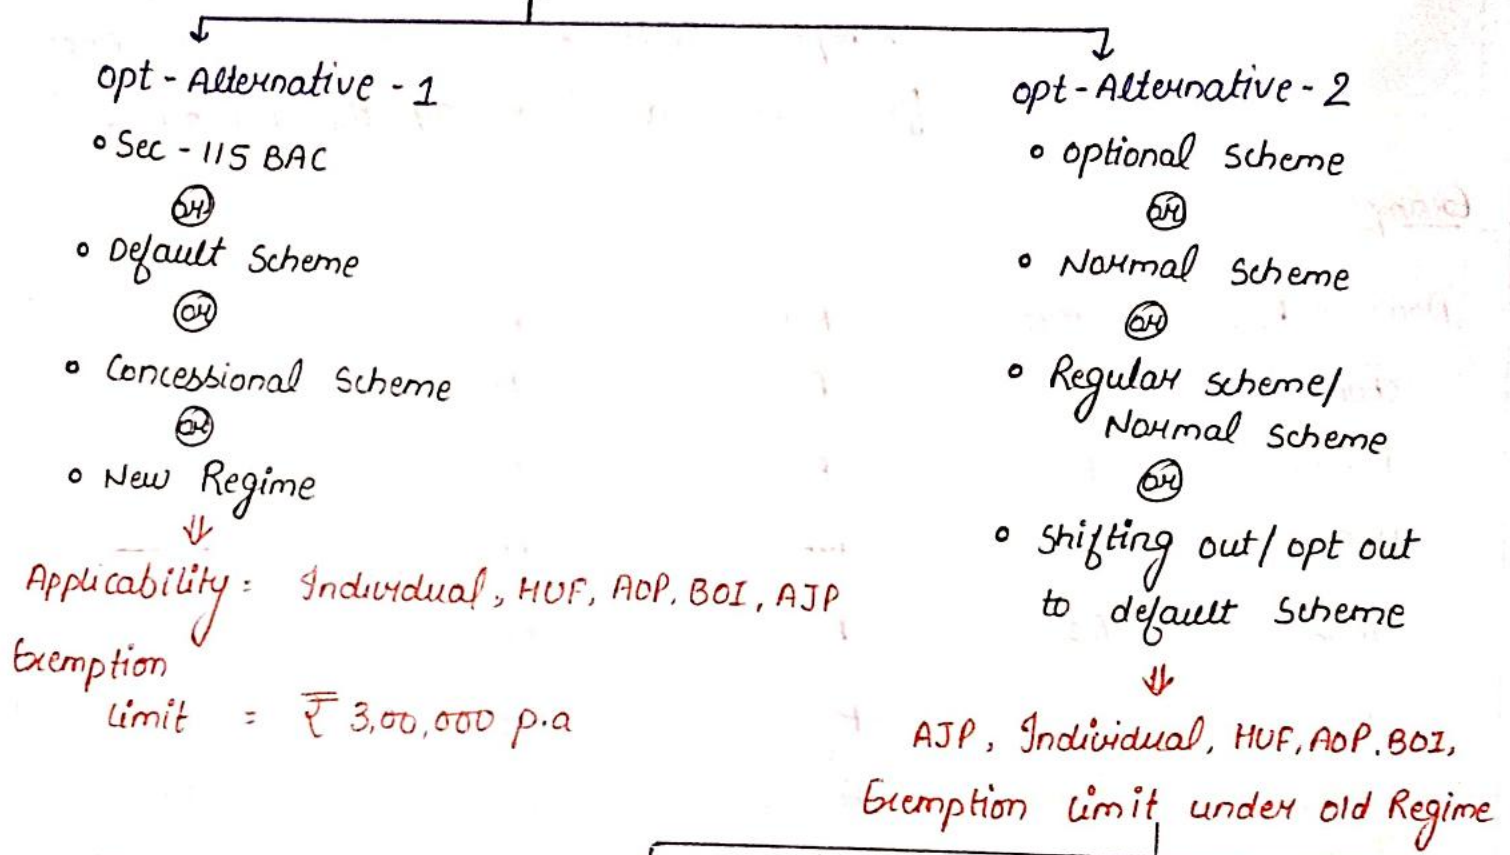 opt - Alternative - 1
• Sec - 115 BAC
or
• Default Scheme
or
• Concessional Scheme
or
• New Regime
Applicability = Individual, HUF, AOP, BOI, AJP
Exemption
Limit = ₹ 3,00,000 p.a
opt - Alternative - 2
• optional scheme
or
• Normal Scheme
or
• Regular scheme/
Normal scheme
or
• Shifting out / opt out
to default Scheme
AJP, Individual, HUF, AOP, BOI,
Exemption Limit under old Regime